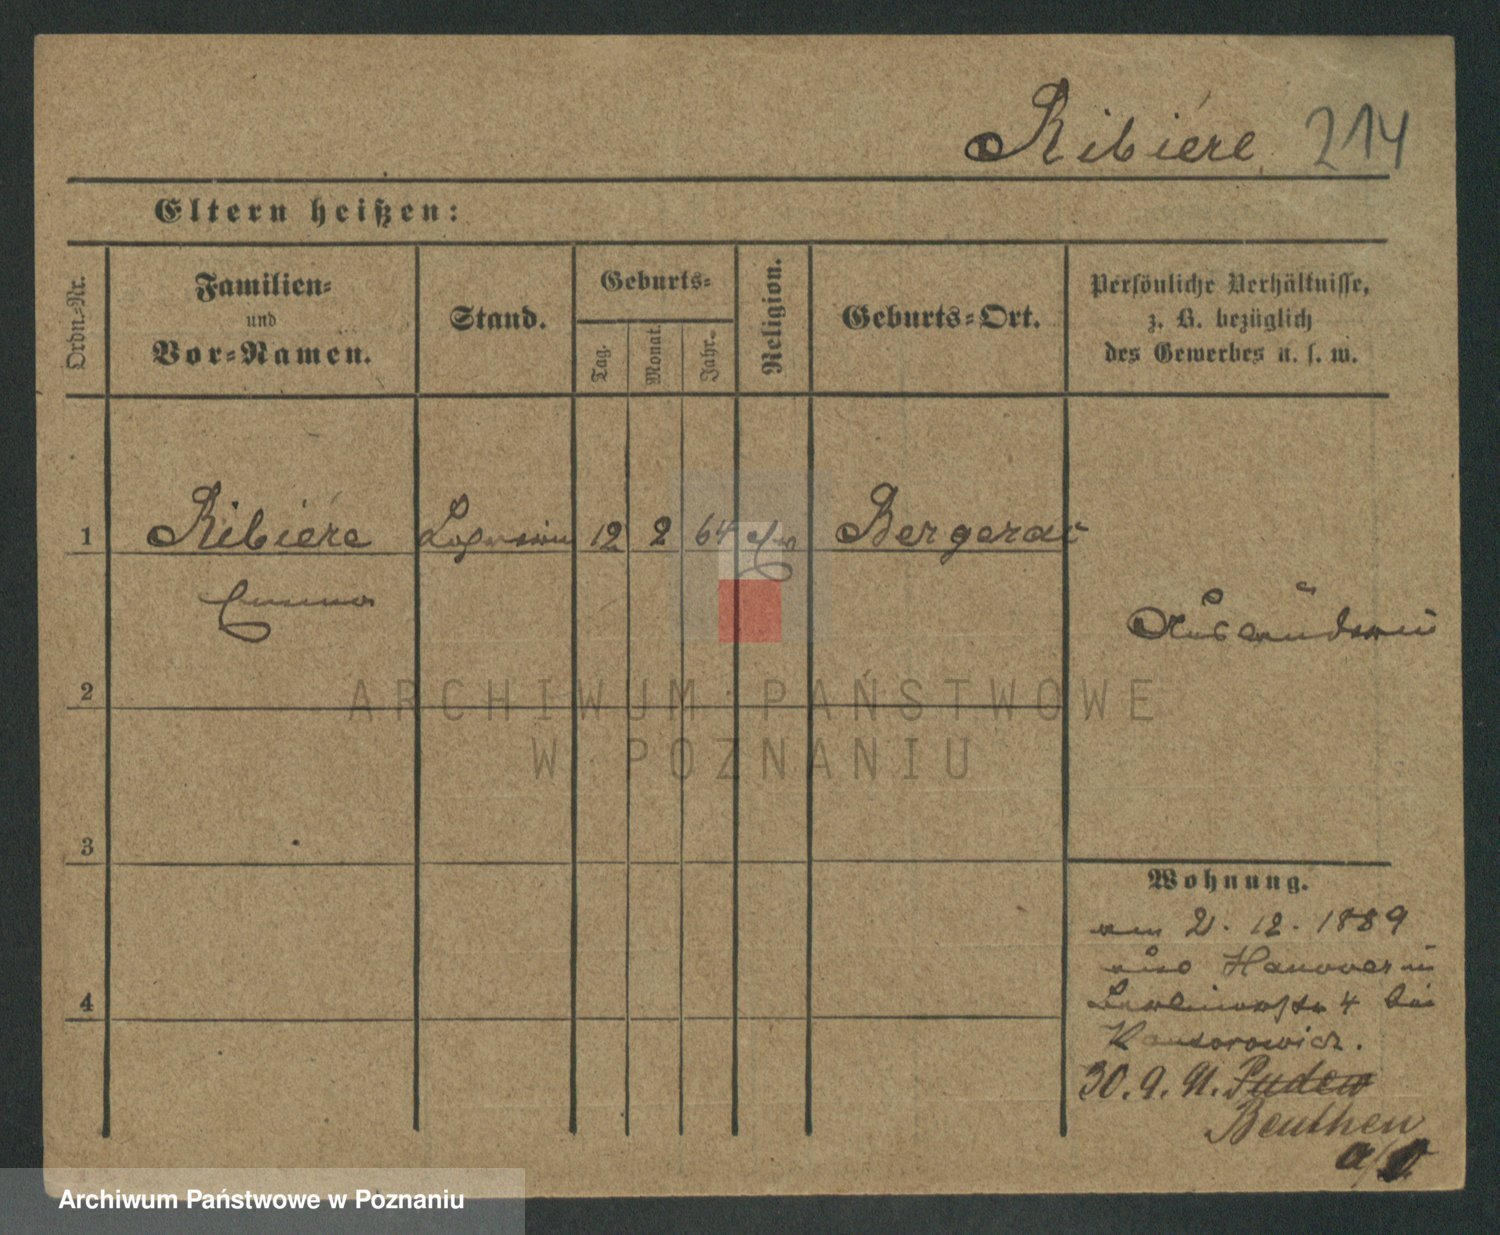 Ribiére 214
Eltern heißen:
Ordn.-Nr.
Familien-
und
Vor-Namen.
Stand.
Geburts-
Tag.
Monat.
Jahr.
Religion.
Geburts-Ort.
Persönliche Verhältnisse,
z. B. bezüglich
des Gewerbes u. s. w.
1 Ribiére Lehrerin 12 2 64 ev Bergerac
Emma
Ausländerin
2
ARCHIWUM PAŃSTWOWE
W POZNANIU
3
Wohnung.
am 21. 12. 1889
aus Hannover in
4 bei
Kantorowicz.
30. 9. 91. Pudew
Beuthen
a/O
4
Archiwum Państwowe w Poznaniu